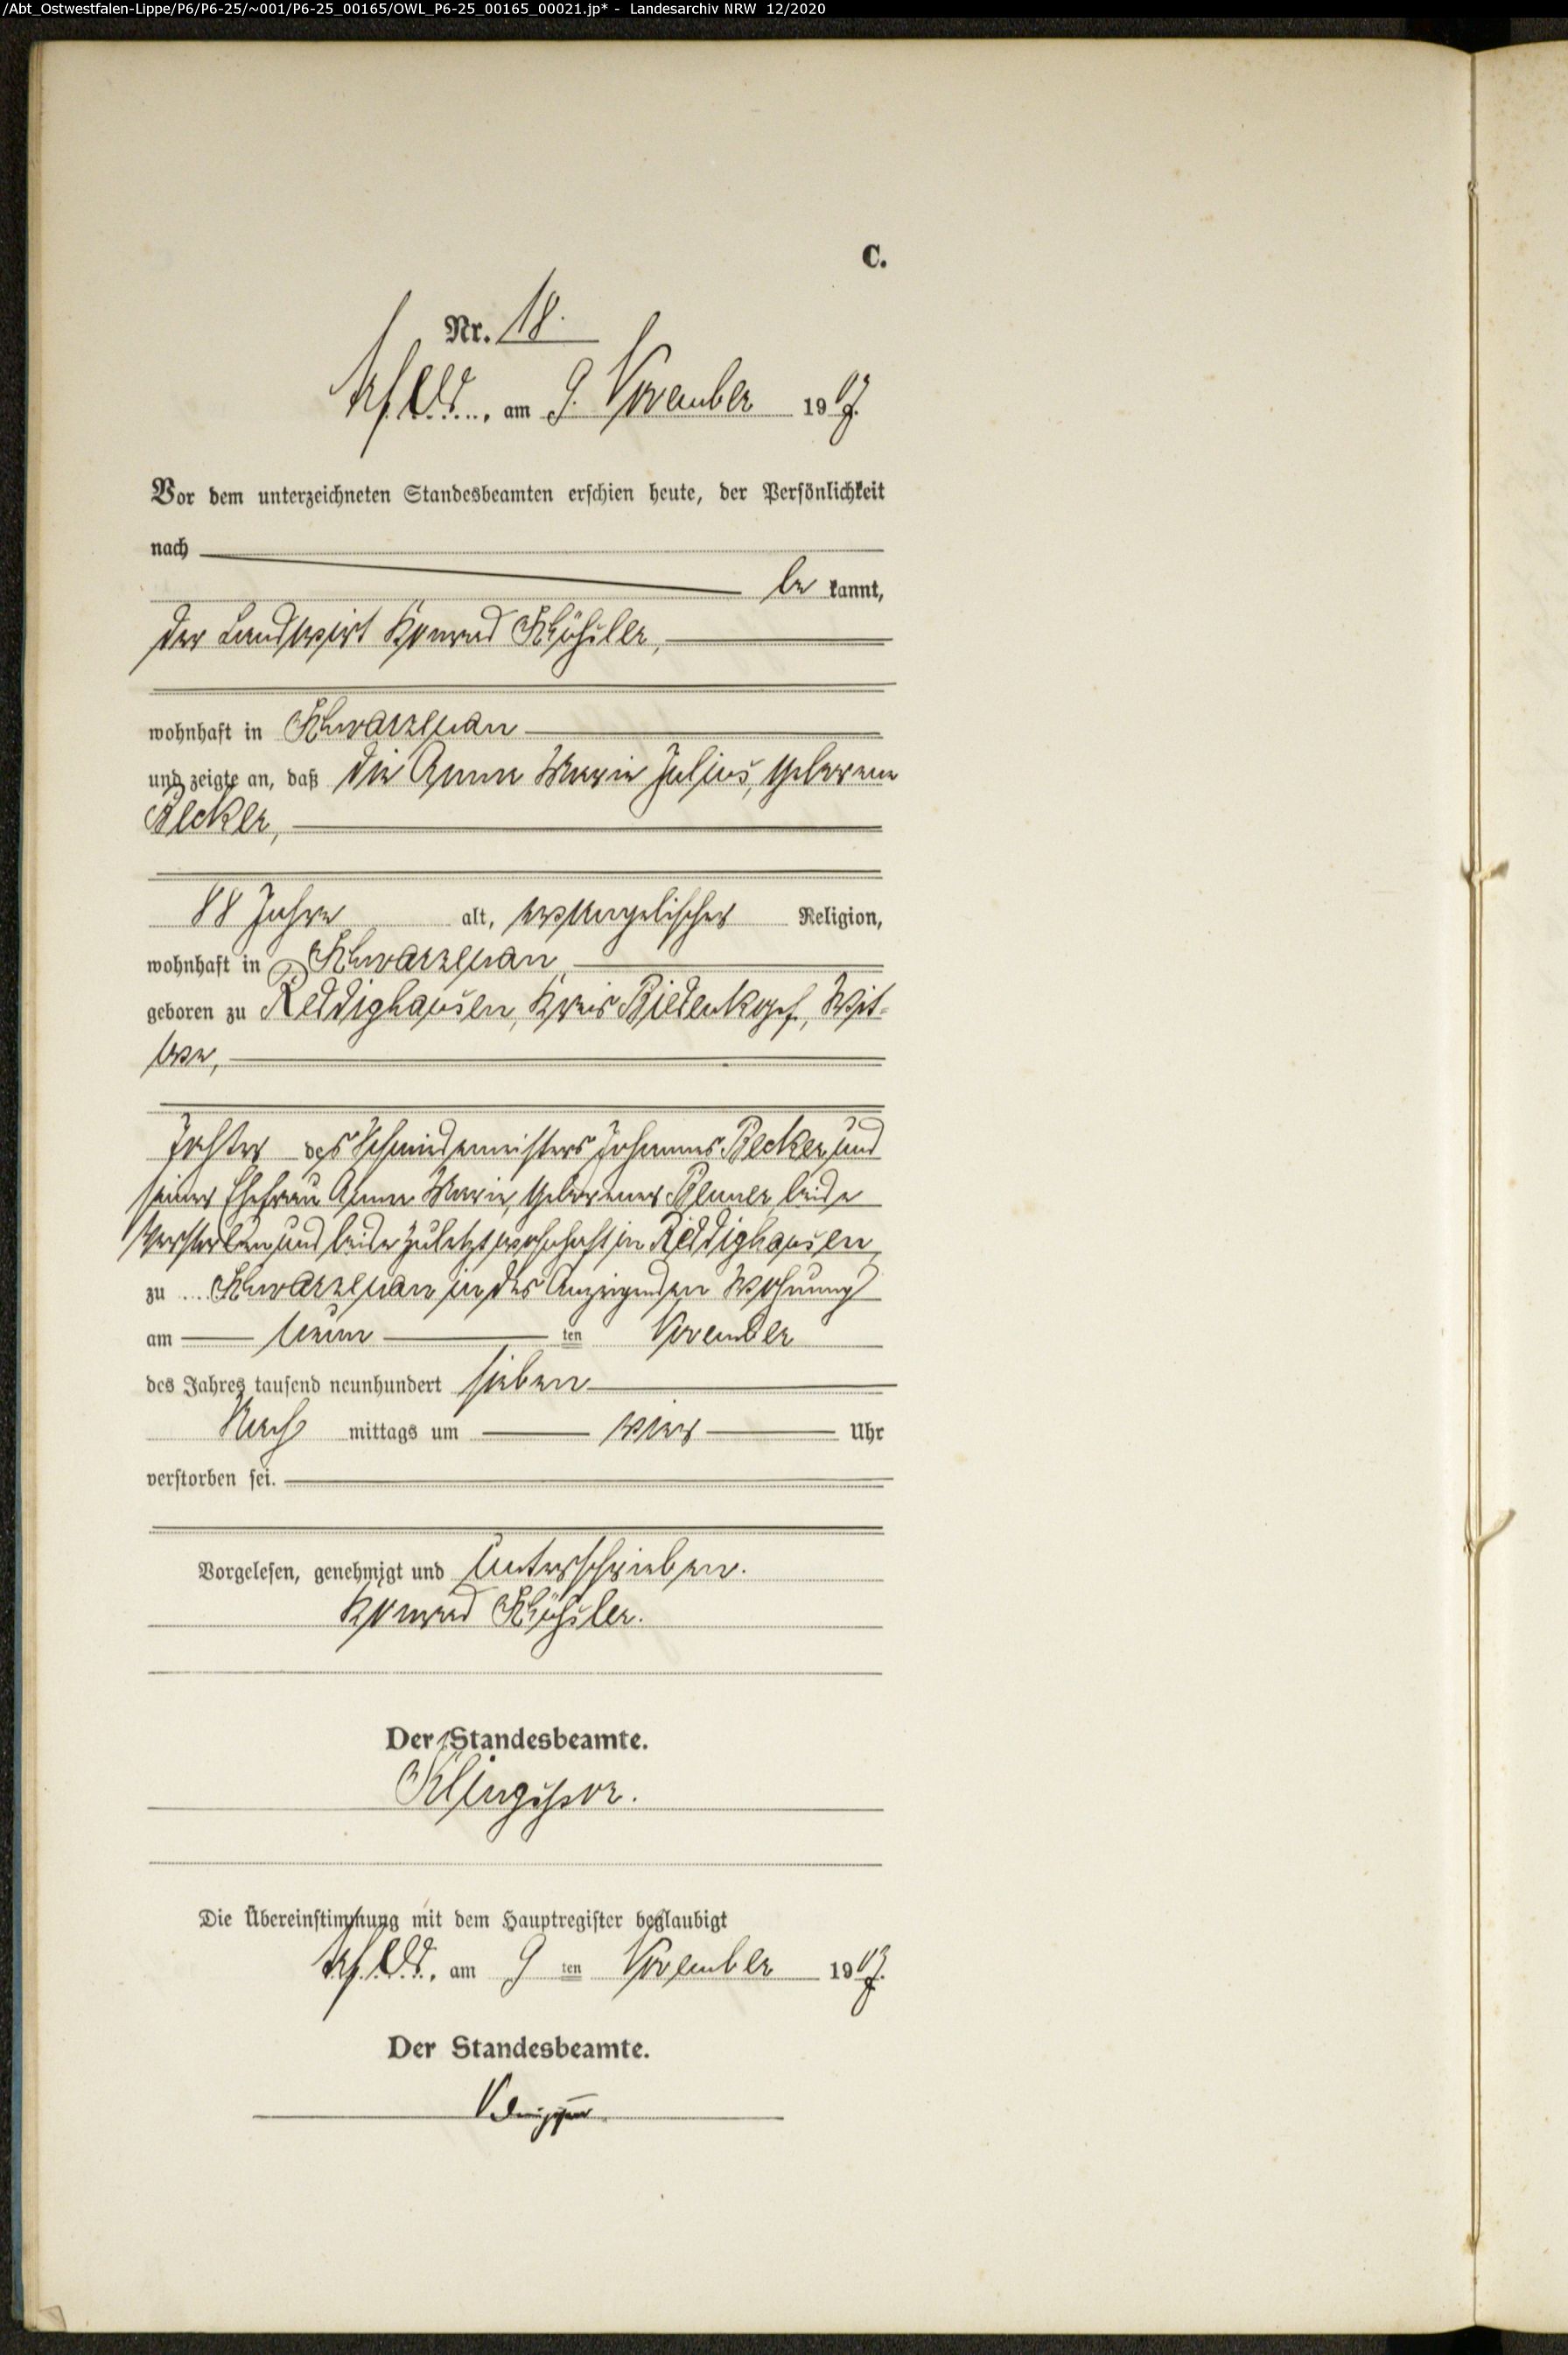 /Abt_Ostwestfalen-Lippe/P6/P6-25/~001/P6-25_00165/OWL_P6-25_00165_00021.jp* - Landesarchiv NRW 12/2020
C.
Nr. 18.
am 9. November 1907.
Vor dem unterzeichneten Standesbeamten erschien heute, der Persönlichkeit
nach
be kannt,
der Landwirt Konrad
wohnhaft in Schwarzenau
und zeigte an, daß die Anna Marie Julius, geborene
Becker,
88 Jahre alt, evangelischer Religion,
wohnhaft in Schwarzenau
geboren zu Reddighausen, Kreis Biedenkopf, Wit-
we,
Tochter des Schmiedemeisters Johannes Becker und
seiner Ehefrau Anna Marie, geborener beide
verstorben und beide zuletzt wohnhaft in Reddighausen
zu Schwarzenau in des Anzeigenden Wohnung
am neun ten November
des Jahres tausend neunhundert sieben
Nach mittags um vier Uhr
verstorben sei.
Vorgelesen, genehmigt und unterschrieben.
Konrad
Der Standesbeamte.
Klingspor.
Die Übereinstimmung mit dem Hauptregister beglaubigt
am 9 ten November 1907.
Der Standesbeamte.
Klingspor